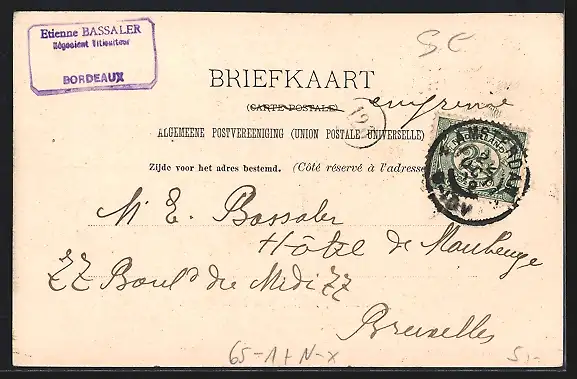 Etienne BASSALER
Négociant Viticulteur
BORDEAUX
SC
BRIEFKAART
(CARTE POSTALE)
ALGEMEENE POSTVEREENIGING (UNION POSTALE UNIVERSELLE)
Zijde voor het adres bestemd. (Côté réservé à l'adresse
AMSTERDAM
Mr E. Bassaler
Hôtel de Maubeuge
22 Bould du Midi 22
Bruxelles
65-1+N-x
5,-